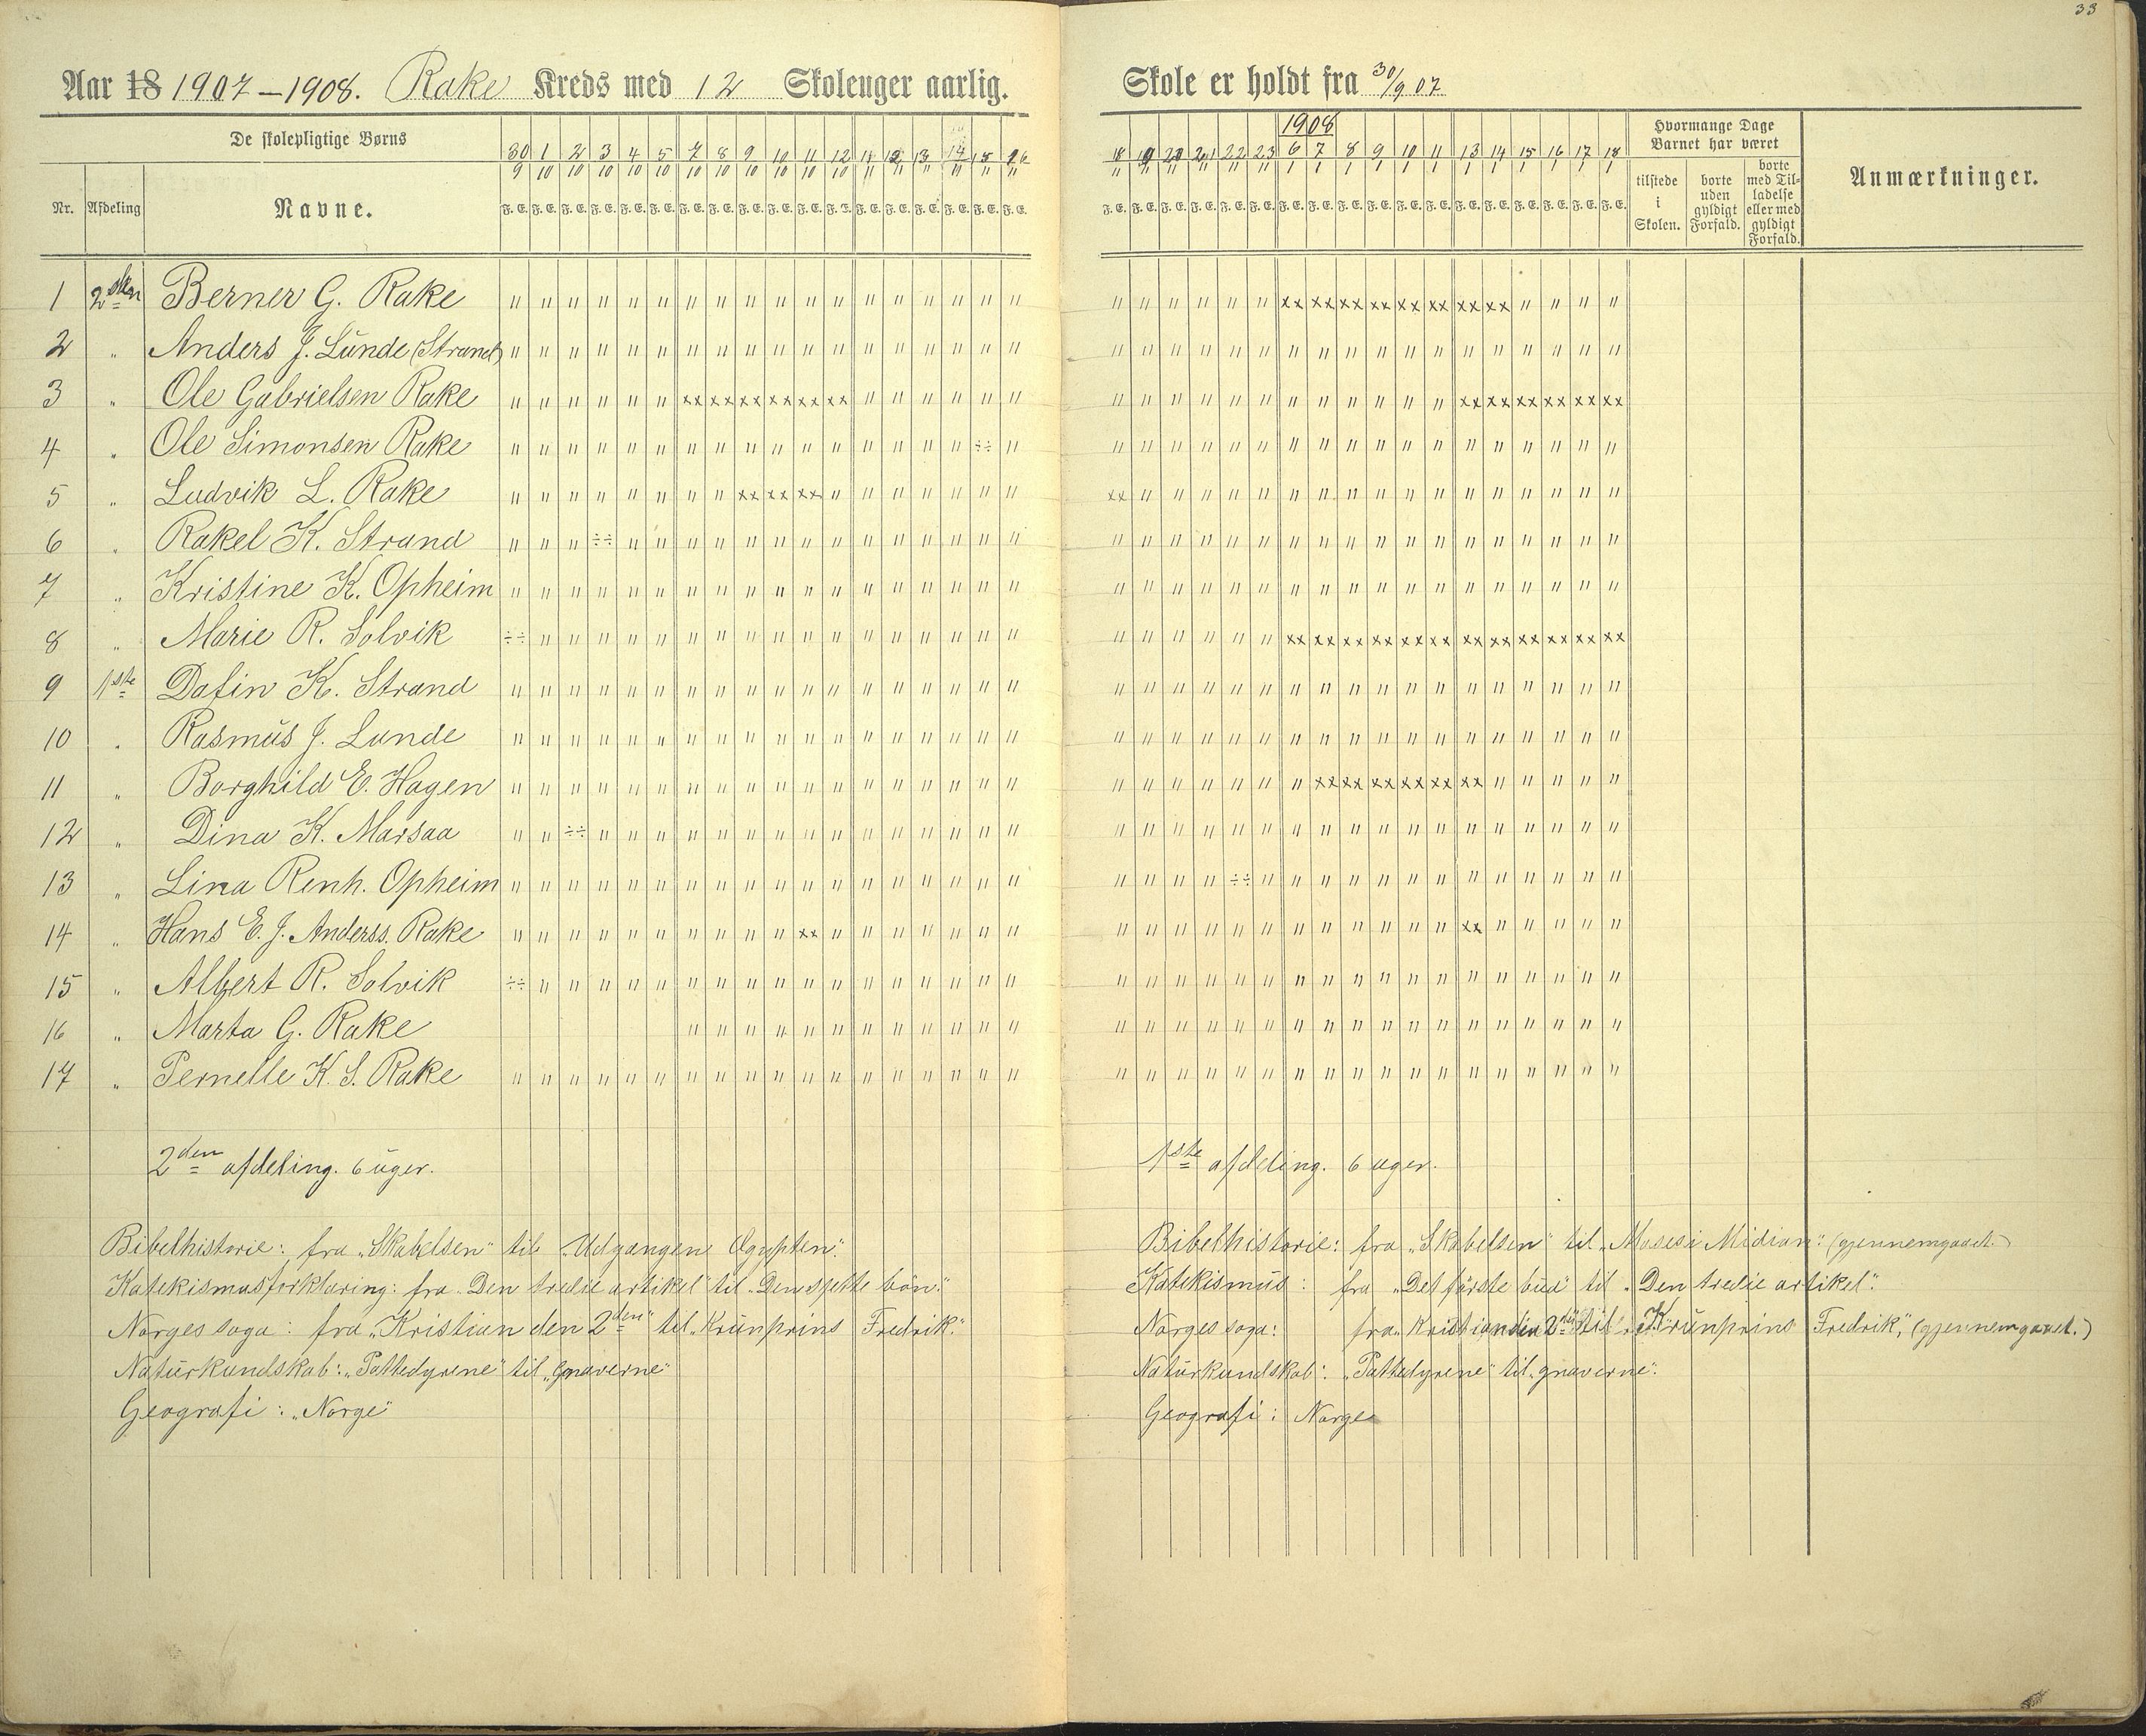 33
Aar 18 1907-1908. Rake Kreds med 12 Skoleuger aarlig.
De skolepligtige Børns
30 1 2 3 4 5 7 8 9 10 11 12 11 12 13 14 15 16
9 10 10 10 10 10 10 10 10 10 10 10 11 11 11 11 11 11
Nr. Afdeling Navne. F. E. F. E. F. E. F. E. F. E. F. E. F. E. F. E. F. E. F. E. F. E. F. E. F. E. F. E. F. E. F. E. F. E. F. E.
1 2den Berner G. Rake
2 " Anders J. Lunde (Strand)
3 " Ole Gabrielsen Rake
4 " Ole Simonsen Rake
5 " Ludvik L. Rake
6 " Rakel K. Strand
7 " Kristine K. Opheim
8 " Marie R. Solvik
9 1ste Dafin K. Strand
10 " Rasmus J. Lunde
11 " Borghild E. Hagen
12 " Dina K. Marsaa
13 " Lina Renh. Opheim
14 " Hans E. J. Anderss. Rake
15 " Albert R. Solvik
16 " Marta G. Rake
17 " Pernelle K. S. Rake
2den afdeling. 6 uger.
Bibelhistorie: fra "Skabelsen" til "Udgangen Ægypten".
Katekismusforklaring: fra "Den tredie artikel" til "Den sjette bön."
Norges soga: fra "Kristian den 2den" til "Krunprins Fredrik."
Naturkundskab: "Pattedyrene" til "gnaverne"
Geografi: "Norge"
Skole er holdt fra 30/9 07
1908
18 19 20 21 22 23 6 7 8 9 10 11 13 14 15 16 17 18
11 11 11 11 11 11 1 1 1 1 1 1 1 1 1 1 1 1
F. E. F. E. F. E. F. E. F. E. F. E. F. E. F. E. F. E. F. E. F. E. F. E. F. E. F. E. F. E. F. E. F. E. F. E.
Hvormange Dage
Barnet har været
tilstede
i
Skolen.
borte
uden
gyldigt
Forfald.
borte
med Til-
ladelse
eller med
gyldigt
Forfald.
Anmærkninger.
1ste afdeling. 6 uger.
Bibelhistorie: fra "Skabelsen" til "Moses i Midian". (gjennemgaaet.)
Katekismus: fra "Det første bud" til "Den tredie artikel".
Norges soga: fra "Kristian den 2den" til "Krunprins Fredrik", (gjennemgaaet.)
Naturkundskab: "Pattedyrene" til "gnaverne".
Geografi: Norge